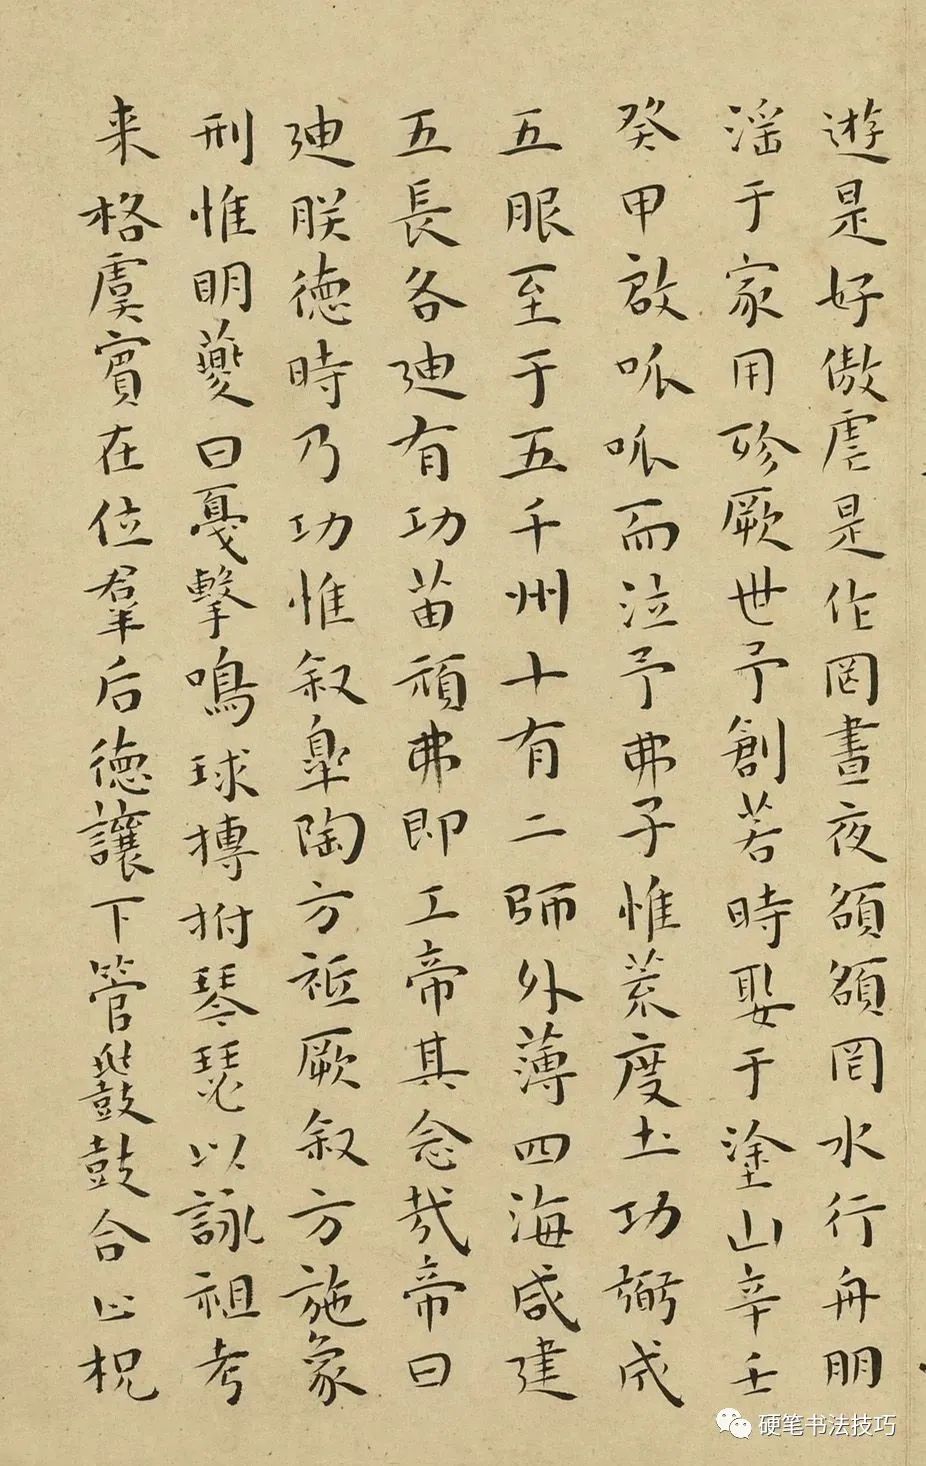 遊是好傲虐是作罔晝夜頟頟罔水行舟朋
淫于家用殄厥世予創若時娶于塗山辛壬
癸甲啟呱呱而泣予弗子惟荒度土功弼成
五服至于五千州十有二師外薄四海咸建
五長各迪有功苗頑弗即工帝其念哉帝曰
迪朕德時乃功惟叙臯陶方祗厥叙方施象
刑惟明夔曰戞擊鳴球搏拊琴瑟以詠祖考
来格虞賓在位羣后德讓下管鼗鼓合止柷
硬笔书法技巧